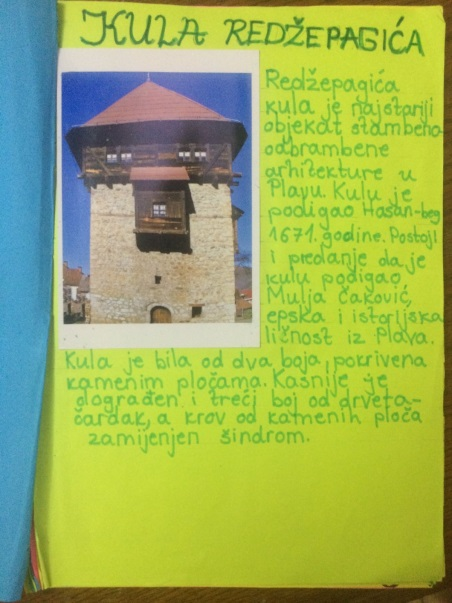 KULA REDŽEPAGIĆA
Redžepagića
kula je najstariji
objekat stambeno
odbrambene
arhitekture u
Plavu. Kulu je
podigao Hasan-beg
1671. godine. Postoji
i predanje da je
kulu podigao
Mulja Čaković,
epska i istorijska
ličnost iz Plava.
Kula je bila od dva boja, pokrivena
kamenim pločama. Kasnije je
dograđen i treći boj od drveta-
čardak, a krov od kamenih ploča
zamijenjen šindrom.